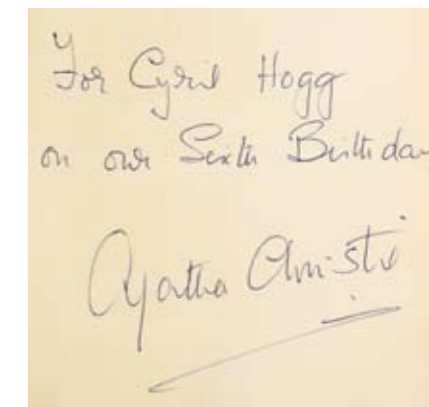 For Cyril Hogg
on our Sixth Birthday
Agatha Christie